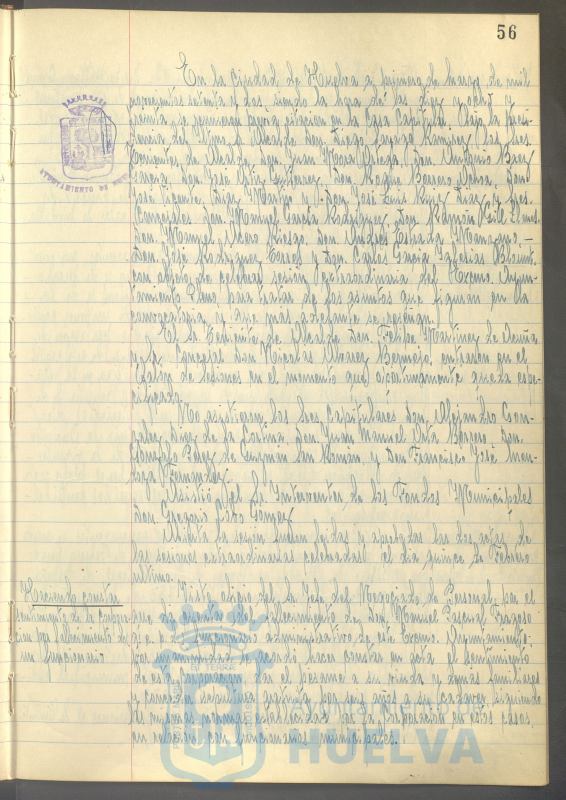 56
En la Ciudad de Huelva a primero de marzo de mil
novecientos setenta y dos, siendo la hora de las diez y ocho y
treinta se reunieron en la Casa Capitular, bajo la Presi-
dencia del Iltmo. Sr. Alcalde Don Diego Ramírez los Sres.
Tenientes de Alcalde, Don Juan Mora Don Antonio Báez
García, Don José Ortiz Gutierrez, Don Roque Borrero Ochoa, Don
José Vicente Díaz y Don José Luis Ruiz Díaz y los
Concejales Don Manuel García Rodríguez, Don Ramón
Don Manuel Don Andrés Estrada Manzano,
Don José Rodríguez y Don Carlos García Iglesias
con objeto de celebrar sesión extraordinaria del Excmo. Ayun-
tamiento Pleno, para tratar de los asuntos que figuran en la
convocatoria y que más adelante se reseñan.
El Sr. Teniente de Alcalde Don Felipe Martínez de Acuña
y el Sr. Concejal Don Nicolás Alvarez Bermejo, entraron en el
Salón de Sesiones en el momento que oportunamente queda espe-
cificado.
No asistieron los Sres. Capitulares Don Alejandro Gon-
zález Díaz de la Cortina, Don Juan Manuel Orta Borrero, Don
Gonzalo Pérez de Guzmán San Román y Don Francisco José Men-
doza Fernández.
Asistió el Sr. Interventor de los Fondos Municipales
Don Gregorio Gómez.
Abierta la sesión fueron leídas y aprobadas las dos actas de
las sesiones extraordinarias celebradas el día quince de Febrero
último.
Haciendo constar
sentimiento de la Corpora-
ción por fallecimiento de
un funcionario
Visto oficio del Sr. Jefe del Negociado de Personal, por el
que da cuenta del fallecimiento de Don Manuel Pascual Fragoso
que era funcionario administrativo de este Excmo. Ayuntamiento,
por unanimidad se acordó hacer constar en acta el sentimiento
de esta Corporación, dar el pésame a su viuda y demás familiares
y conceder sepultura gratuita por seis años a su cadáver, siguiendo
las mismas normas establecidas por la Corporación en estos casos,
en relación con funcionarios municipales.
AYUNTAMIENTO DE
Ayuntamiento de
HUELVA